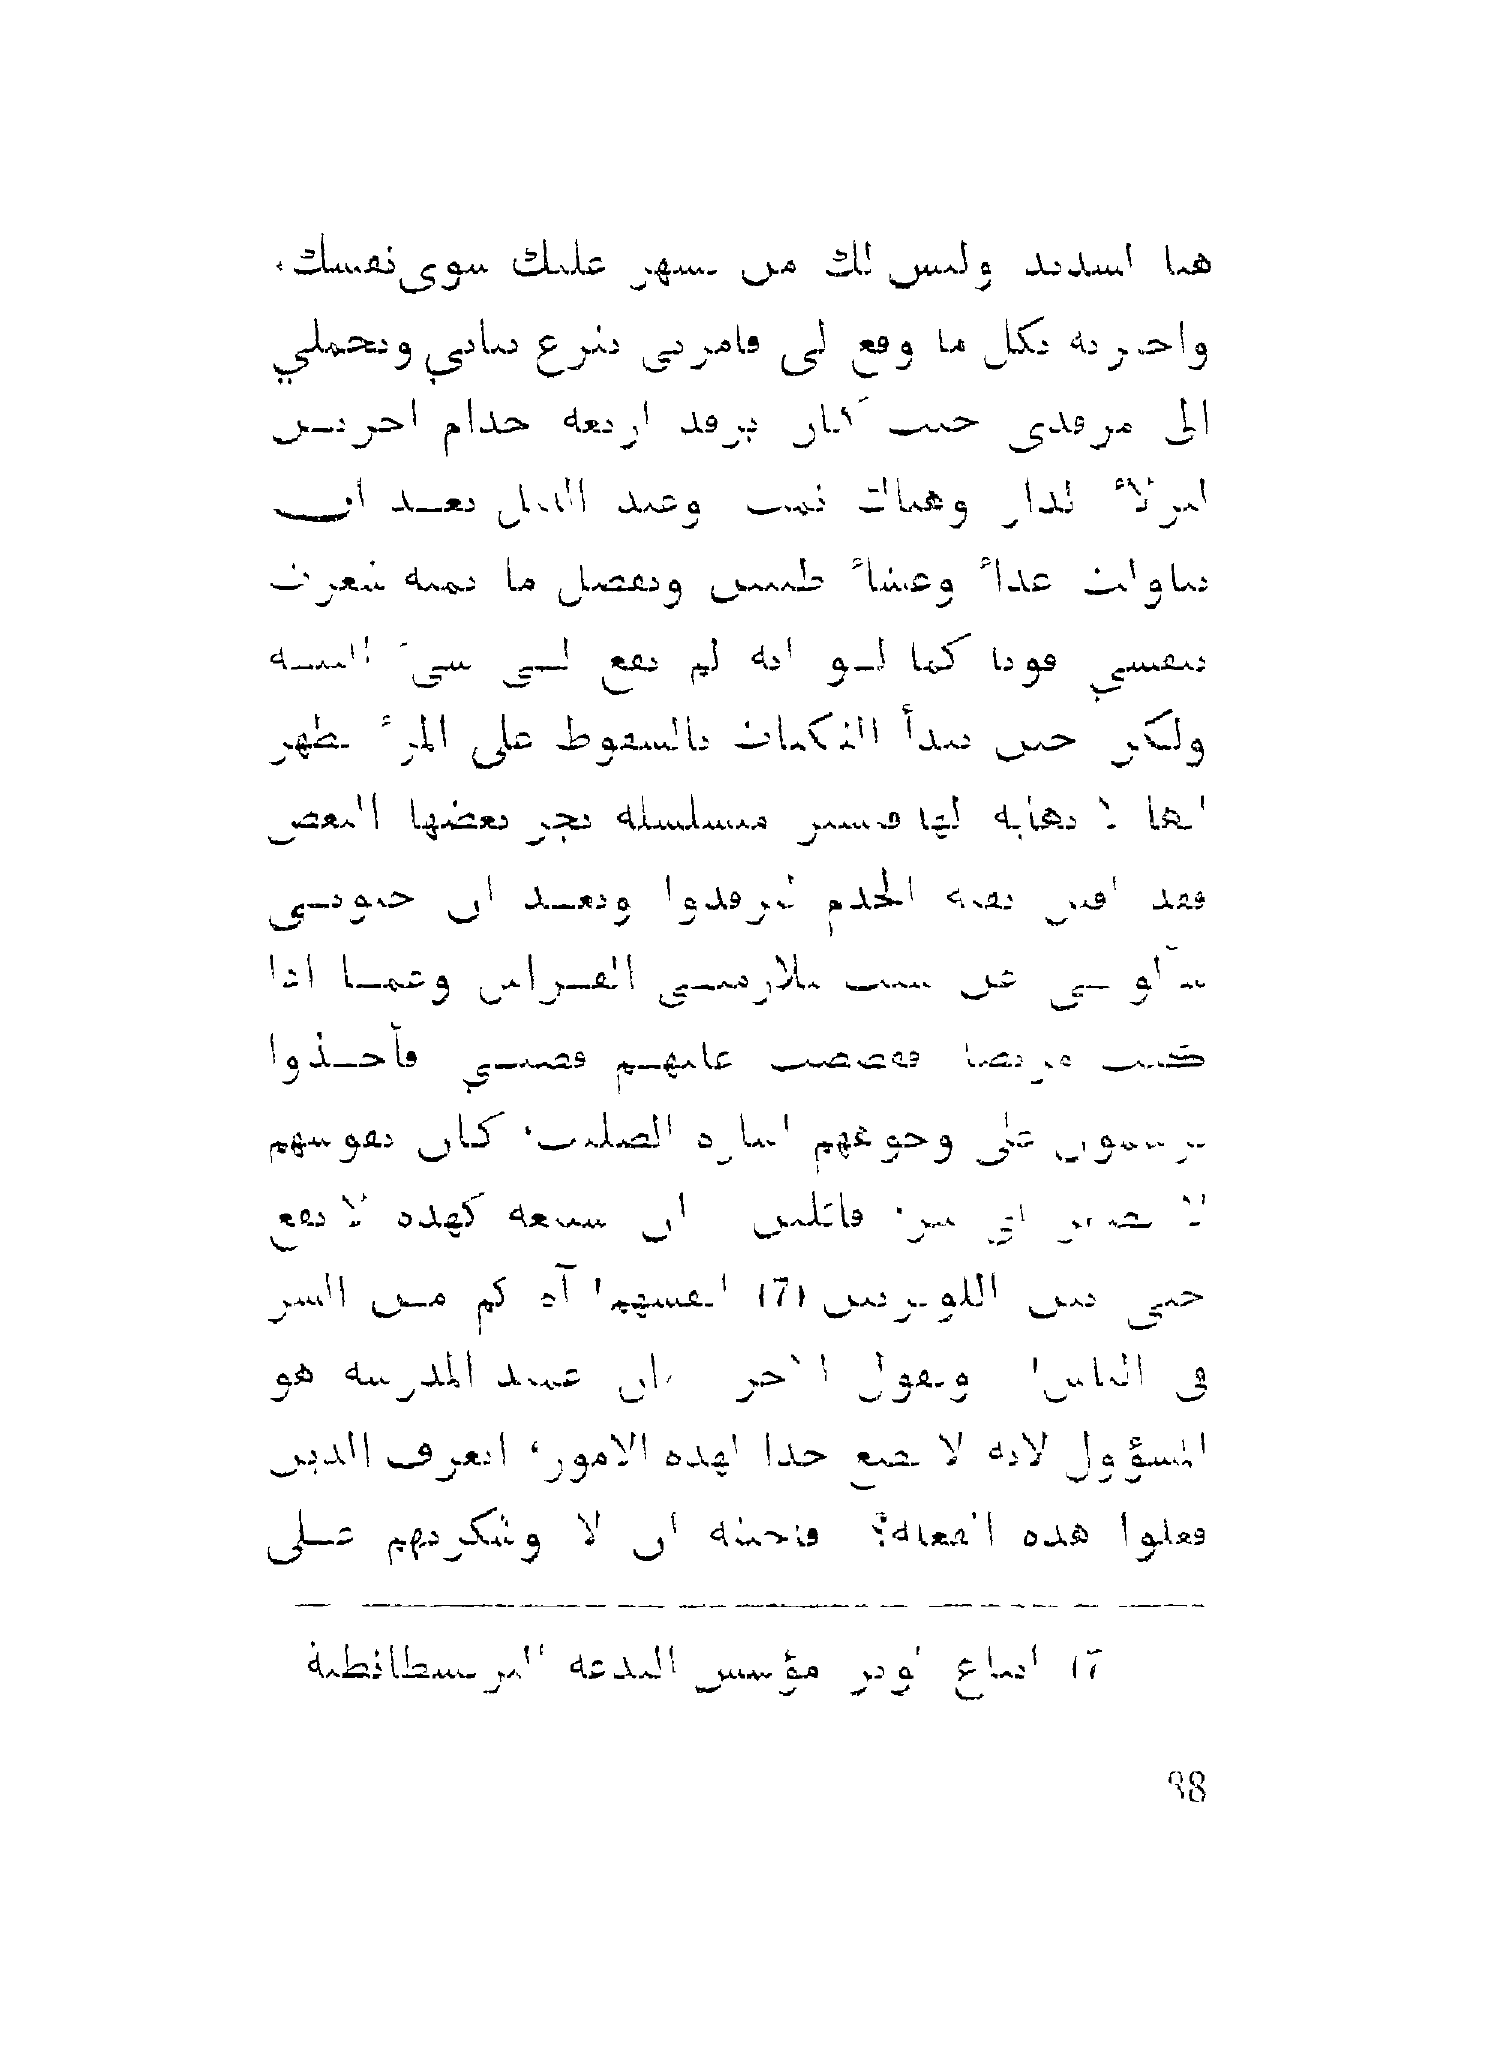 هنا اسديد وليس لك من يسهر عليك سوى نفسك،
واخبرته بكل ما وقع لي فامرني بنزع ثيابي وبحملي
الى مرقدي حيث كان يرقد اربعة خدام آخرين
لنزلاء الدار وهناك نمت وعند الليل بعد ان
تناولت غداءً وعشاءً طيبين وبفضل ما نمته شعرت
بنفسي قويا كما لو انه لم يقع لي شيء البتة
ولكن حين تبدأ النكبات بالسقوط على المرء يظهر
انها لا نهاية لها فتسير متسلسلة تجر بعضها البعض
فقد اقبل بقية الخدم ليرقدوا وبعد ان حيوني
سألوني عن سبب ملازمتي الفراش وعما اذا
كنت مريضا فقصصت عليهم قصتي فأخذوا
يرسمون على وجوههم اشارة الصليب، كأن نفوسهم
لا تضمر اي شر، قائلين ان شنعة كهذه لا تقع
حتى بين اللوثريين (7) انفسهم! آه كم من الشر
في الناس! ويقول الآخر ان عميد المدرسة هو
المسؤول لانه لا يضع حدا لهذه الامور، اتعرف الذين
فعلوا هذه الفعلة؟ فاجبته ان لا وشكرتهم على
7) اتباع لوثر مؤسس البدعة البرتسطانطية
98